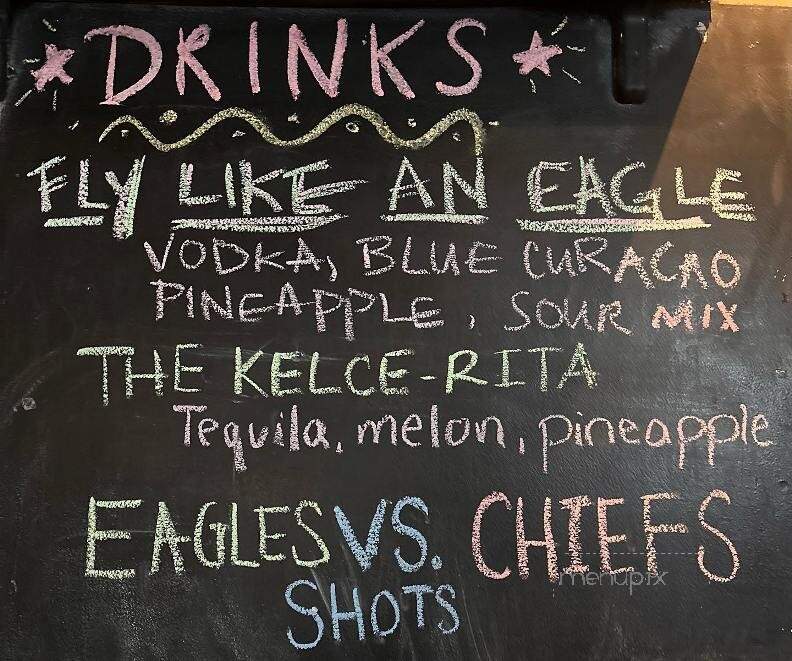 DRINKS
FLY LIKE AN EAGLE
VODKA, BLUE CURACAO
PINEAPPLE, SOUR MIX
THE KELCE-RITA
Tequila, melon, pineapple
EAGLES VS. CHIEFS
menupix
SHOTS